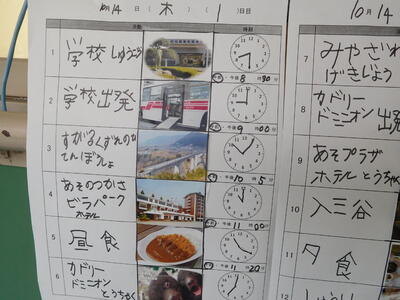 10月14日(木)(1)日目
活動
時刻
1
学校しゅうごう
午前・午後 8 時 30 分
2
学校出発
午前・午後 9 時 00 分
3
てんぼうしょ
午前・午後 10 時 5 分
4
あそのつかさ
ビラパーク
ホテル
午前・午後 11 時 00 分
5
昼食
午前・午後 11 時 20 分
6
カドリー
ドミニオン
とうちゃく
10月14
7
みやざわ
げきじょう
8
カドリー
ドミニオン出発
9
あそプラザ
ホテルとうちゃく
10
入三谷
11
夕食
12